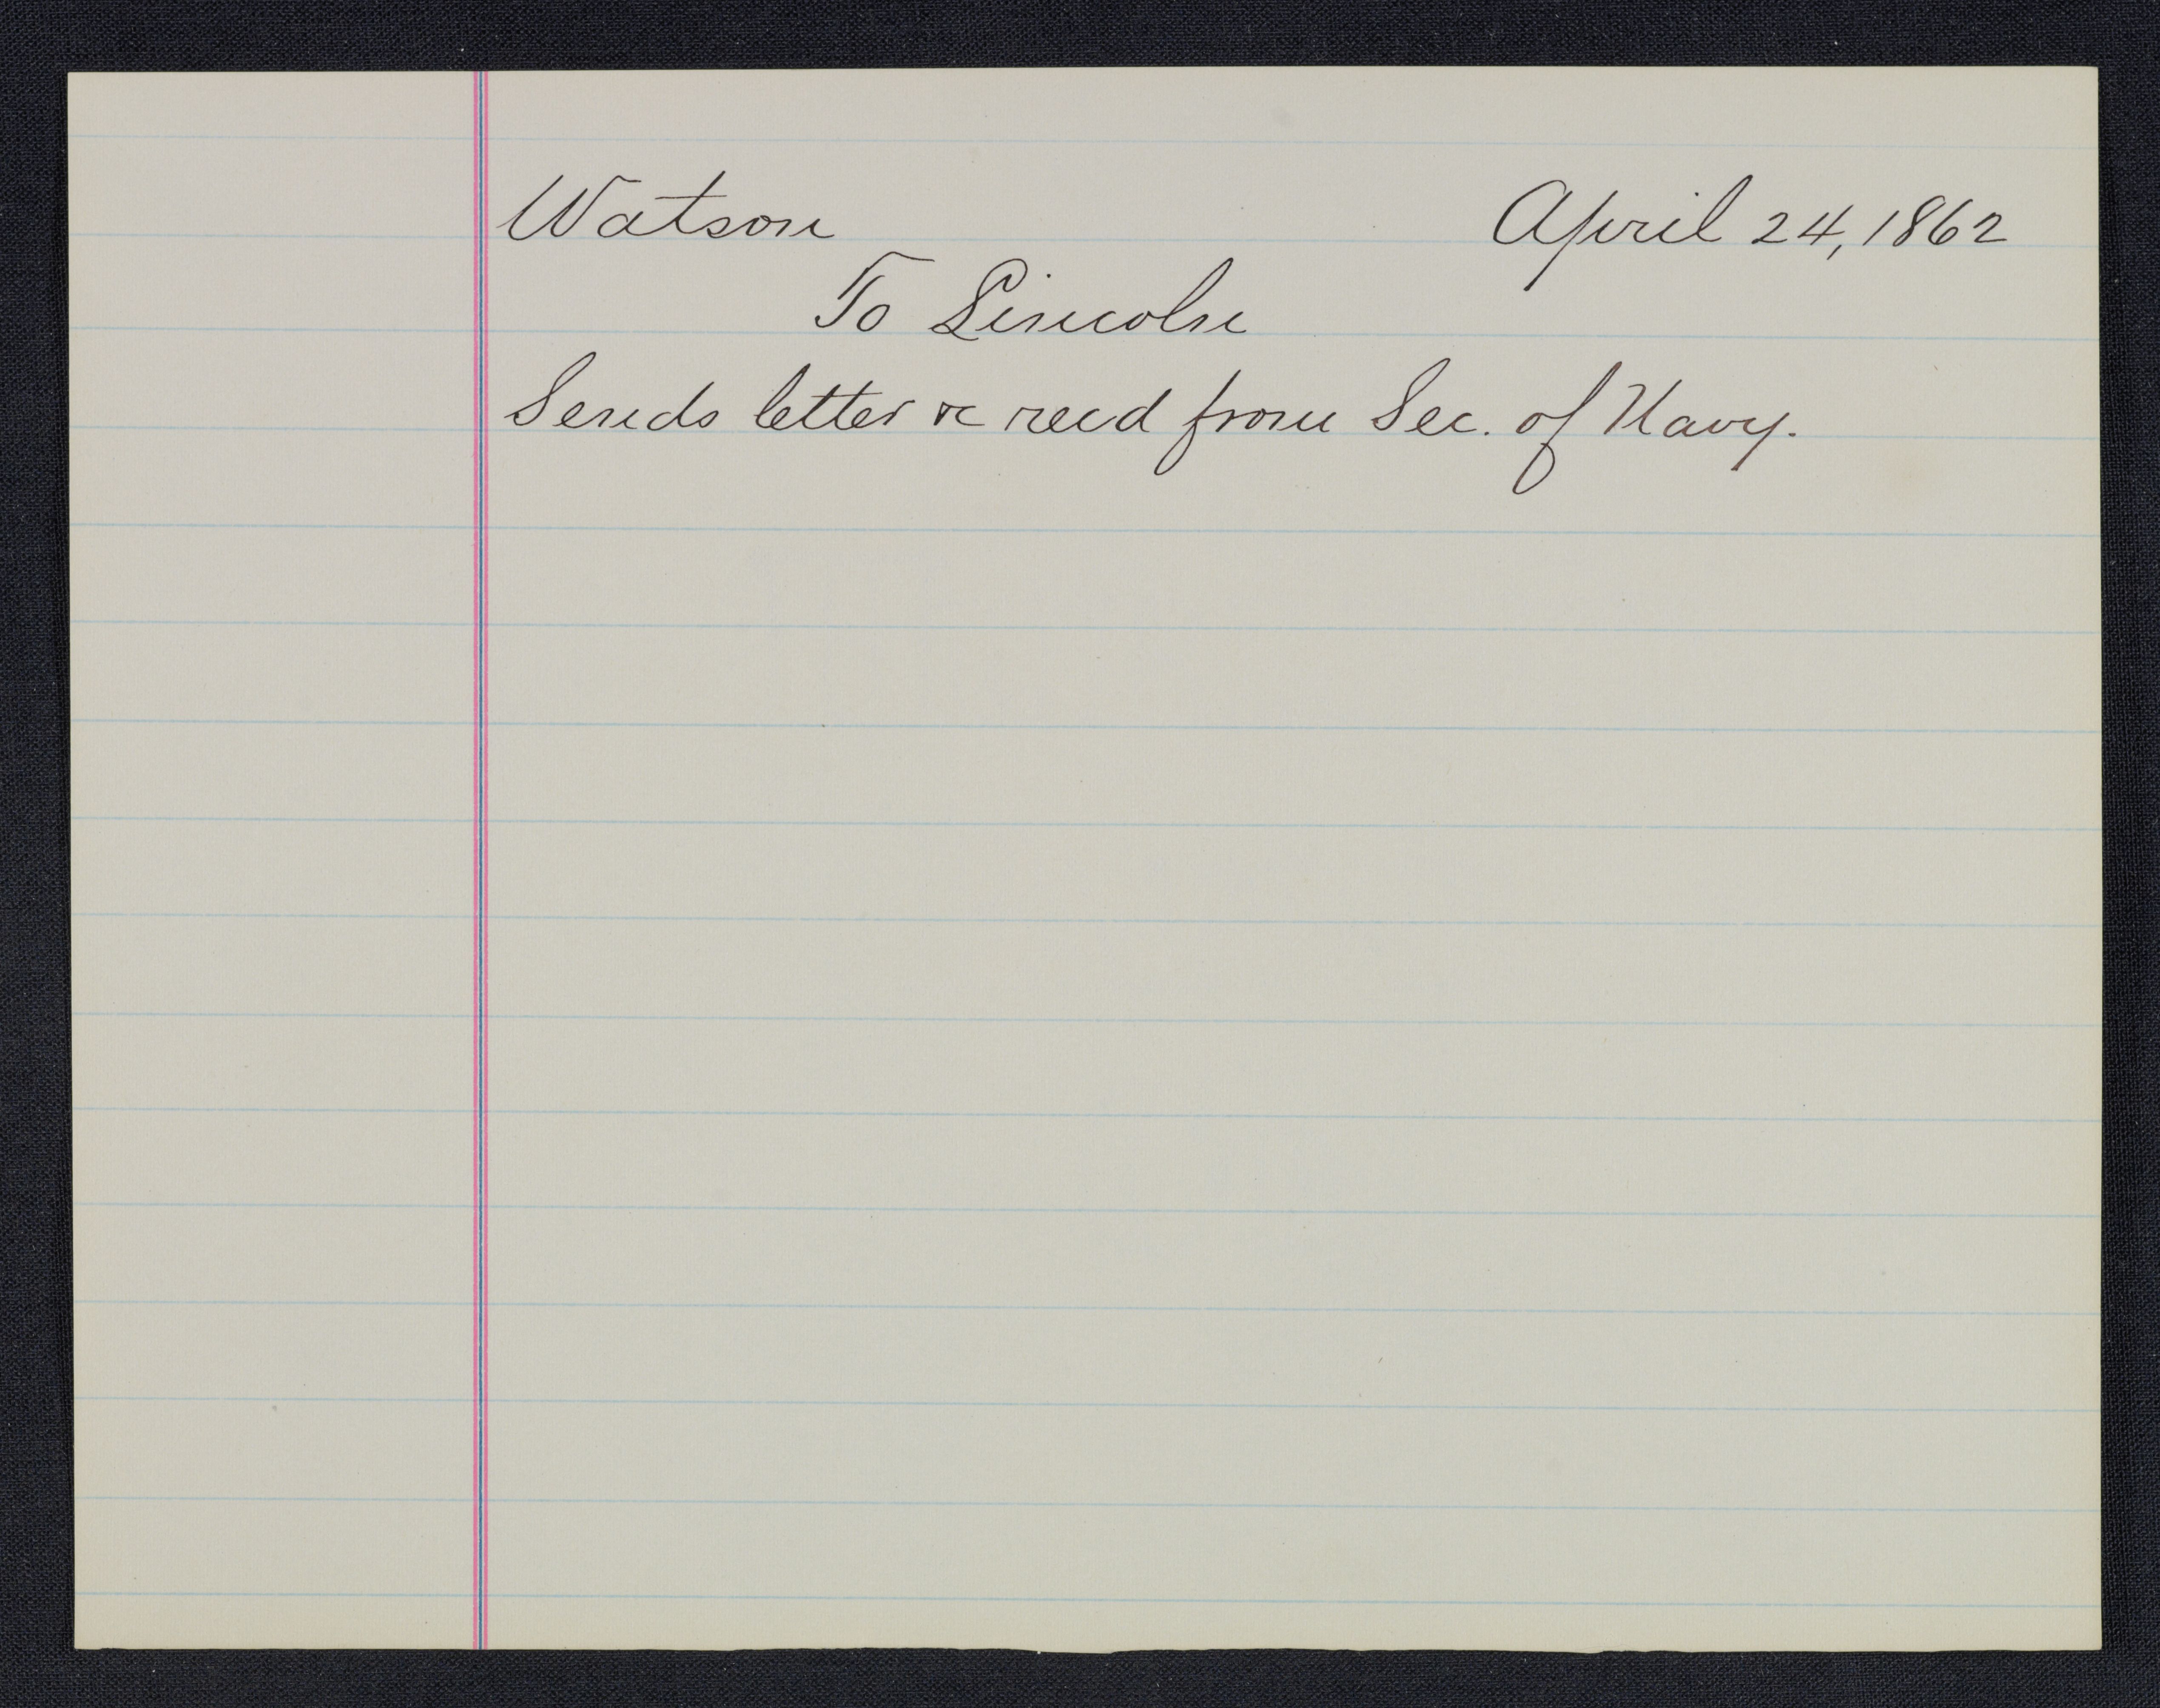 Watson April 24, 1862
To Lincoln
Sends letter &c recd from Sec. of Navy.